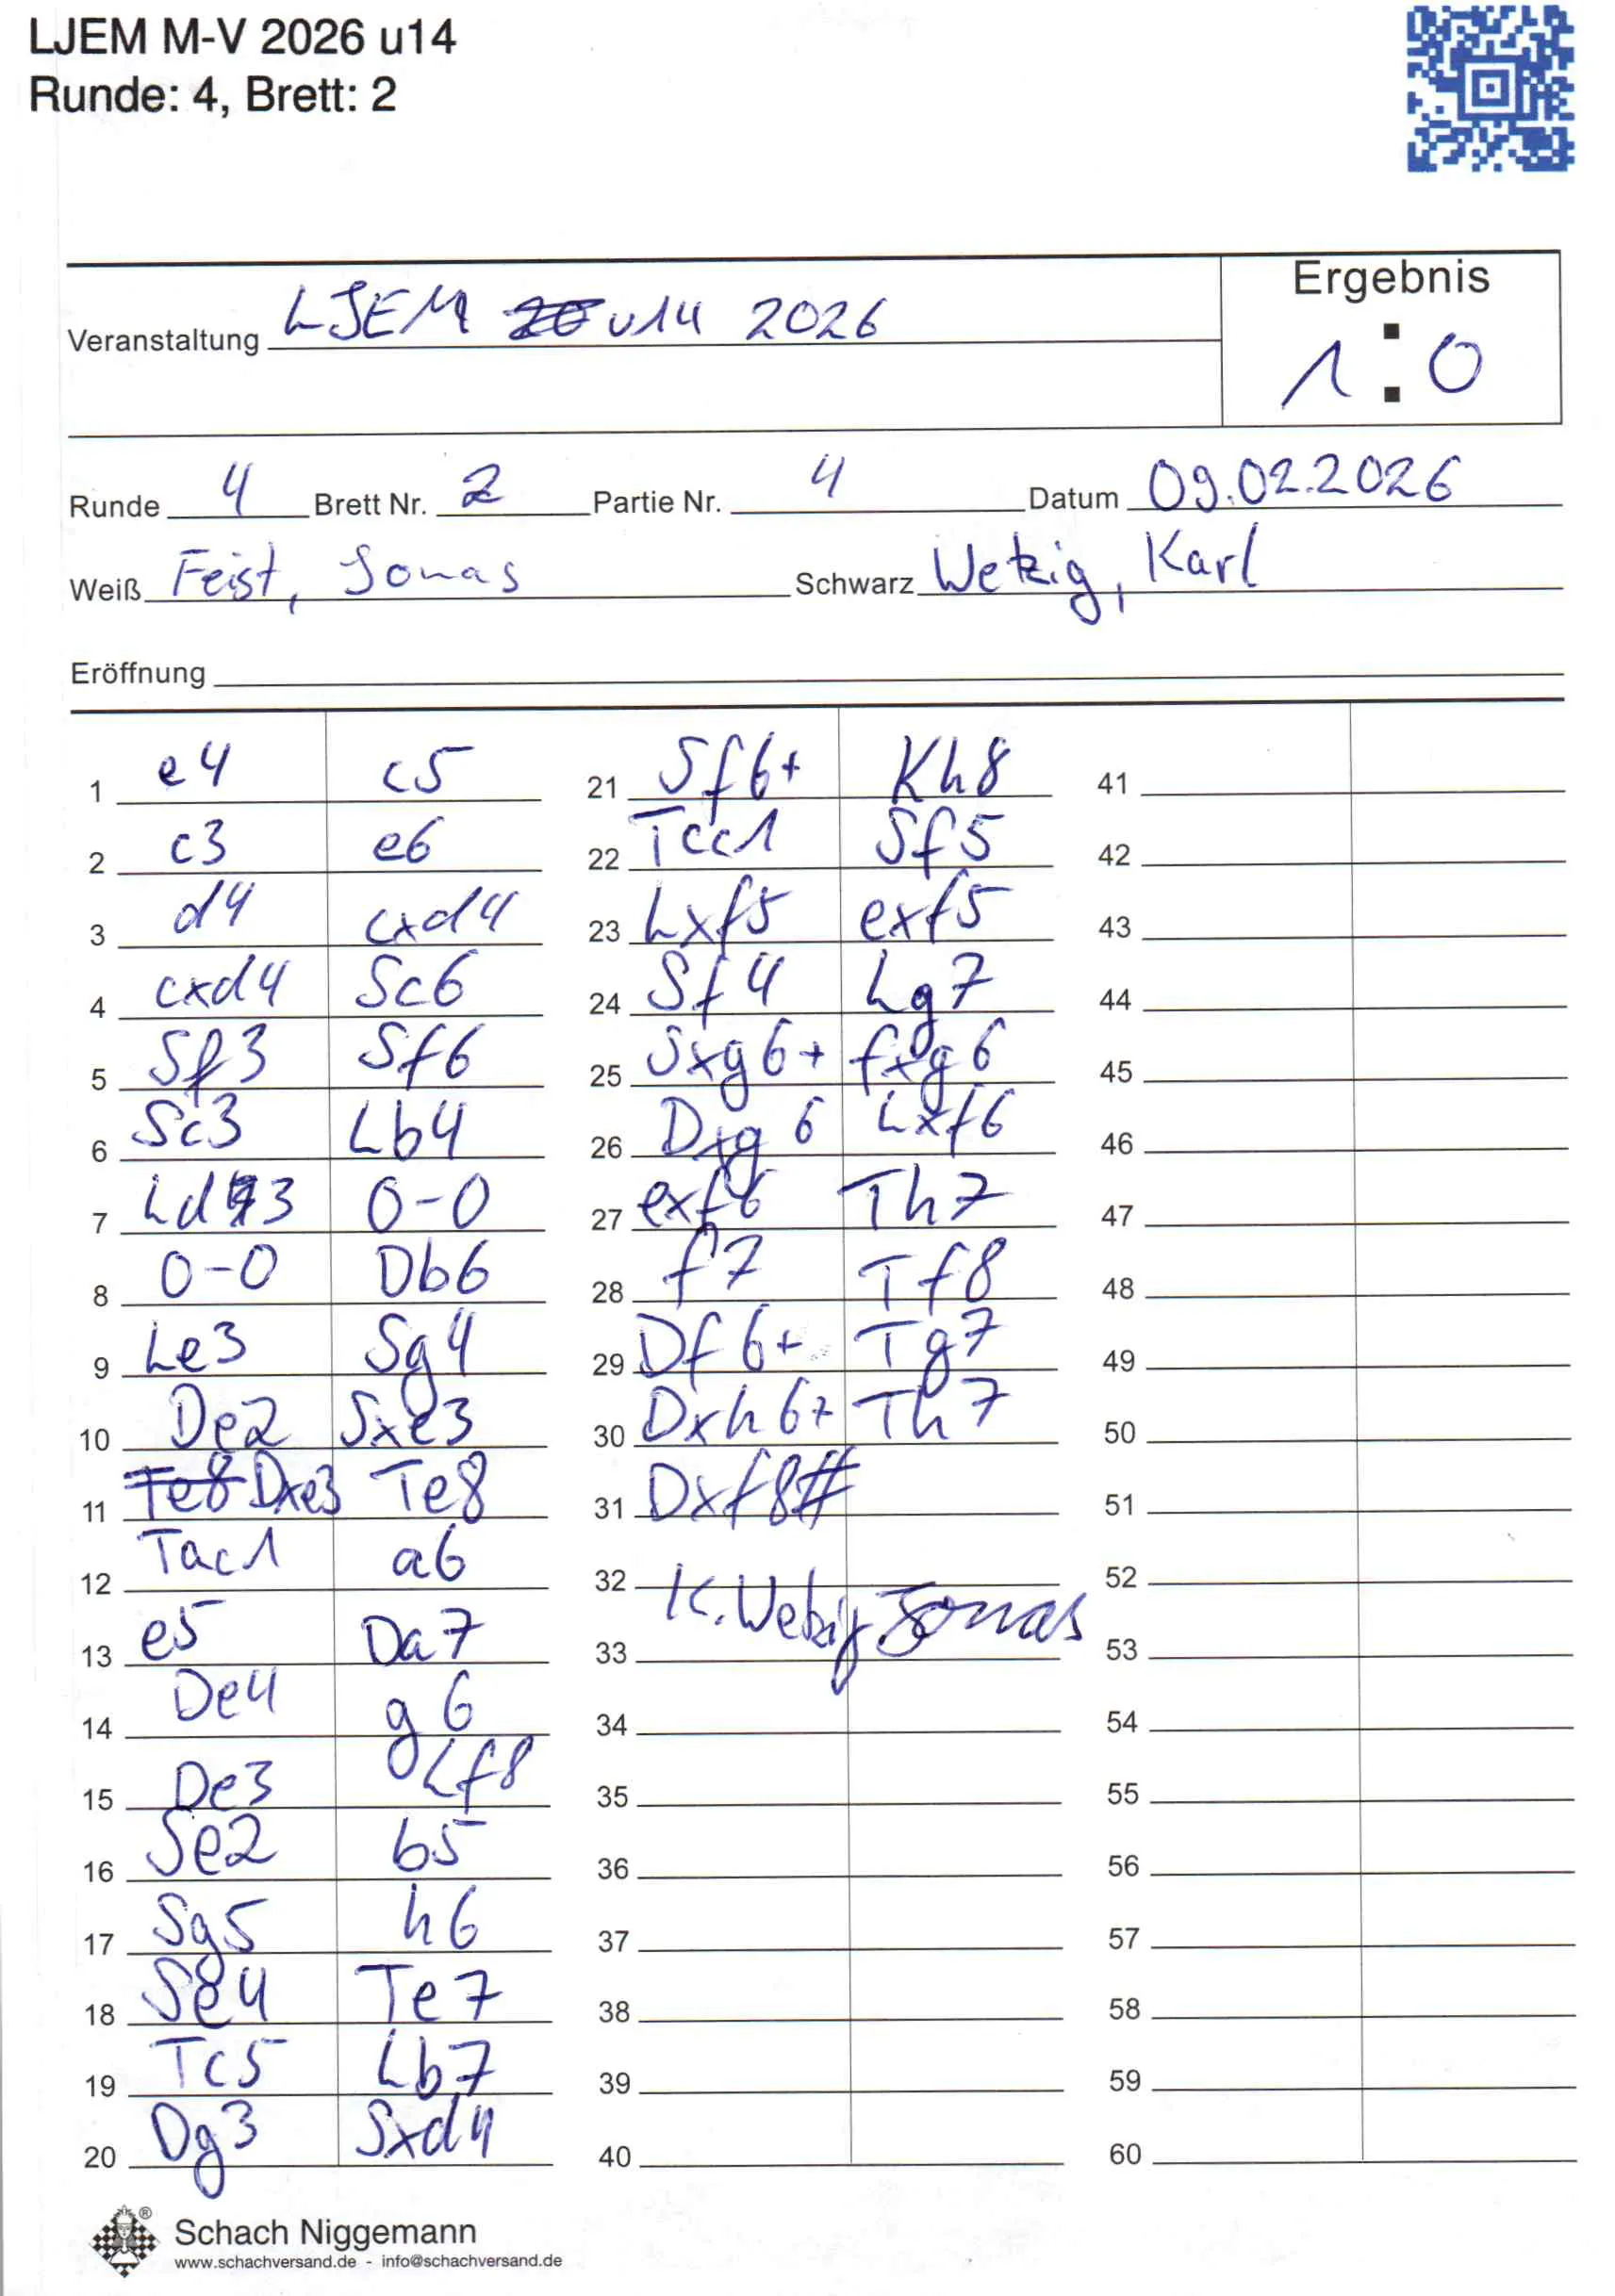 LJEM M-V 2026 u14
Runde: 4, Brett: 2
Ergebnis
Veranstaltung LJEM u14 2026
1 : 0
Runde 4 Brett Nr. 2 Partie Nr. 4 Datum 09.02.2026
Weiß Feist, Jonas Schwarz Wetzig, Karl
Eröffnung
1 e4 c5
2 c3 e6
3 d4 cxd4
4 cxd4 Sc6
5 Sf3 Sf6
6 Sc3 Lb4
7 Ld3 0-0
8 0-0 Db6
9 Le3 Sg4
10 De2 Sxe3
11 Te8 Dxe3 Te8
12 Tac1 a6
13 e5 Da7
14 De4 g6
15 De3 Lf8
16 Se2 b5
17 Sg5 h6
18 Se4 Te7
19 Tc5 Lb7
20 Dg3 Sxd4
21 Sf6+ Kh8
22 Tcc1 Sf5
23 Lxf5 exf5
24 Sf4 Lg7
25 Sxg6+ fxg6
26 Dxg6 Lxf6
27 exf6 Th7
28 f7 Tf8
29 Df6+ Tg7
30 Dxh6+ Th7
31 Dxf8#
32 K. Wetzig Jonas
33
34
35
36
37
38
39
40
41
42
43
44
45
46
47
48
49
50
51
52
53
54
55
56
57
58
59
60
® Schach Niggemann
www.schachversand.de - info@schachversand.de